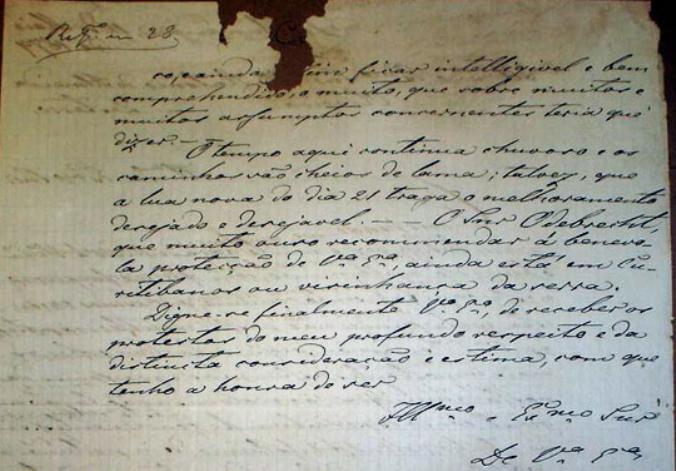 em 28
ficar intelligivel e bem
comprehendido, a muito, que sobre muitos e
muitos assumptos concernentes teria que
dizer. —
O tempo aqui continua chuvoso e os
caminhos são cheios de lama; talvez, que
a lua nova do dia 21 traga o melhoramento
desejado e desejavel. — — O Snr Odebrecht,
que muito ouso recommendar á benevo-
la protecção de Vª Exª, ainda está em Cu-
ritibanos ou visinhança da serra.
Digne-se finalmente Vª Exª, de receber os
protestos do meu profundo respeito e da
distincta consideração e estima, com que
tenho a honra de ser
Illmo e Exmo Snr
De Vª Exª